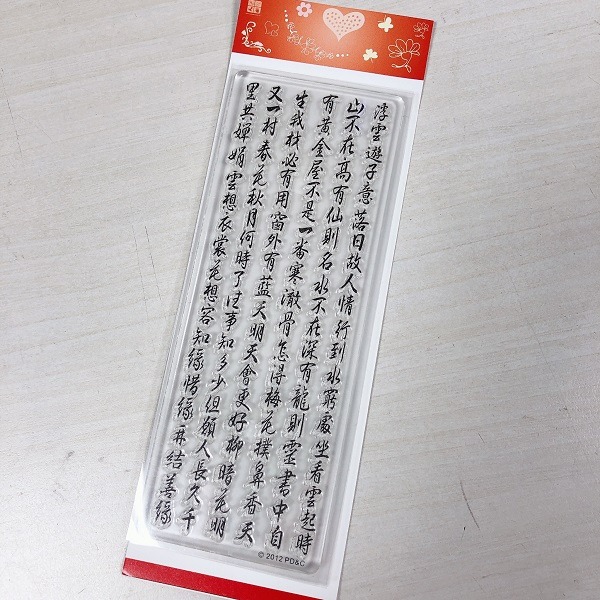 浮雲遊子意落日故人情行到水窮處坐看雲起時
山不在高有仙則名水不在深有龍則靈書中自
有黃金屋不是一番寒澈骨怎得梅花撲鼻香天
生我材必有用窗外有藍天明天會更好柳暗花明
又一村春花秋月何時了往事知多少但願人長久千
里共嬋娟雲想衣裳花想容知緣惜緣再結善緣
© 2012 PD&C